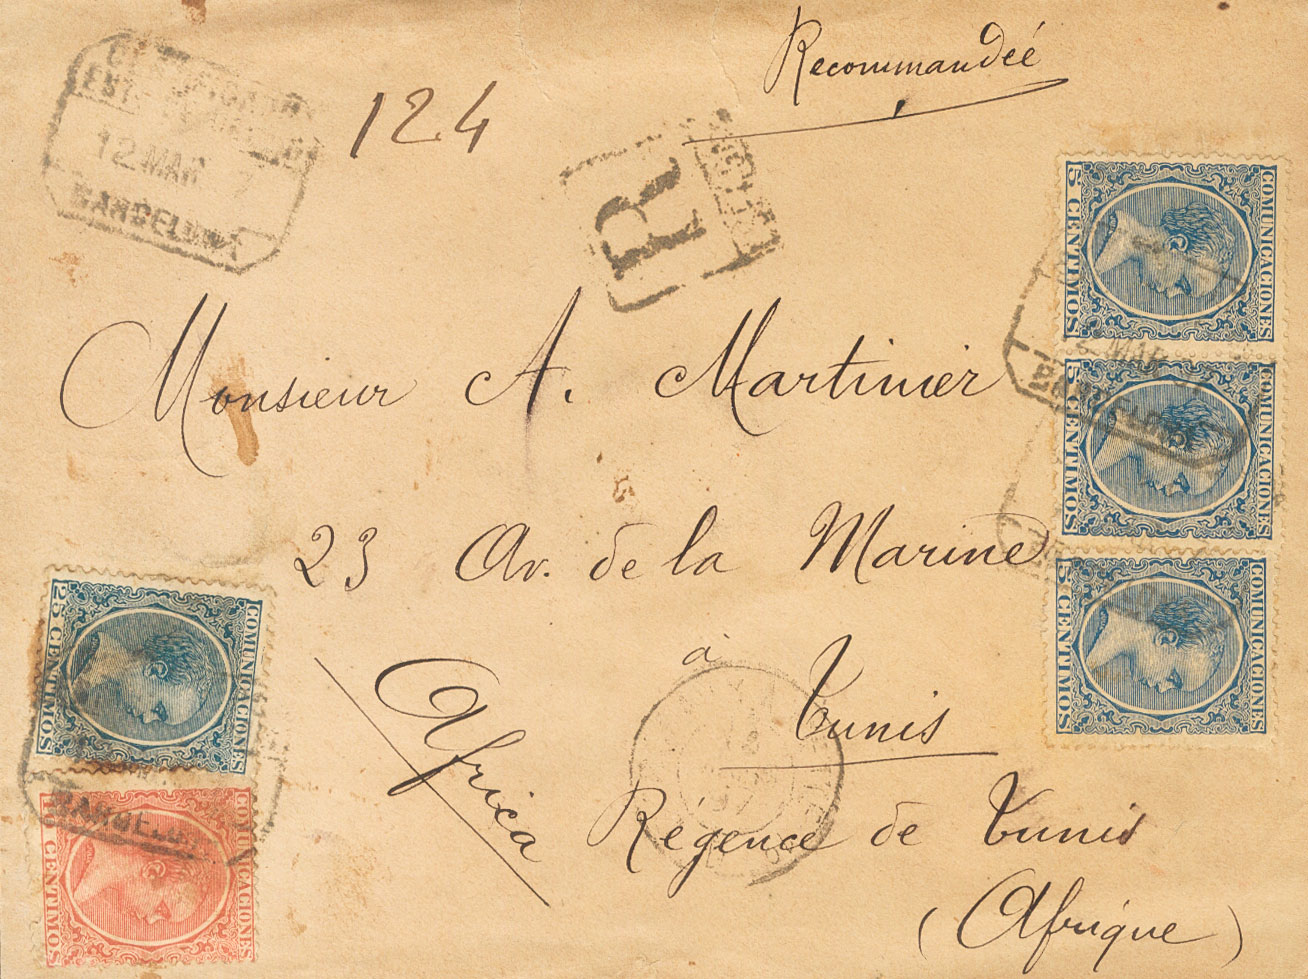 Recommandeé
124
12 MAR
BARCELONA
R
Monsieur A. Martinier
23 Av. de la Marine
à Tunis
Africa
Régence de Tunis
(Afrique)
COMUNICACIONES
5 CENTIMOS
COMUNICACIONES
5 CENTIMOS
COMUNICACIONES
5 CENTIMOS
MAR
BARCELONA
COMUNICACIONES
25 CENTIMOS
BARCELO
COMUNICACIONES
10 CENTIMOS